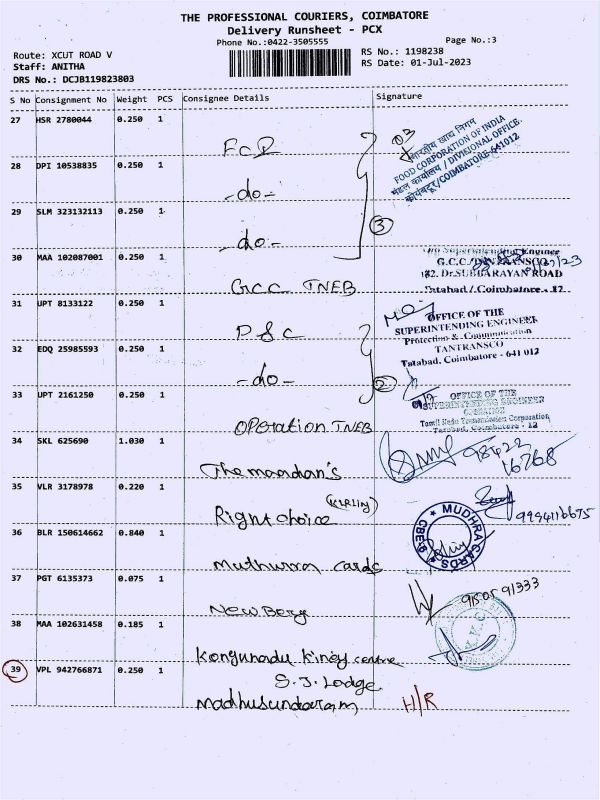 THE PROFESSIONAL COURIERS, COIMBATORE
Delivery Runsheet - PCX
Phone No.:0422-3505555
Page No.:3
Route: XCUT ROAD V
Staff: ANITHA
DRS No.: DCJB119823803
RS No.: 1198238
RS Date: 01-Jul-2023
S No Consignment No Weight PCS Consignee Details Signature
27 HSR 2780044 0.250 1 FCI
भारतीय खाद्य निगम
FOOD CORPORATION OF INDIA
मंडल कार्यालय / DIVISIONAL OFFICE.
कोयंबटूर/COIMBATORE-641012
28 DPI 10538835 0.250 1 -do-
29 SLM 323132113 0.250 1 -do-
3
30 MAA 102087001 0.250 1 GCC TNEB
Superintending Engineer
G.C.C./TANTRANSCO
182. Dr.SUBBARAYAN ROAD
Tatabad / Coimbatore - 12
31 UPT 8133122 0.250 1 P&C
OFFICE OF THE
SUPERINTENDING ENGINEER
Protection & Communication
TANTRANSCO
Tatabad, Coimbatore - 641 012
32 EDQ 25985593 0.250 1 -do-
2
33 UPT 2161250 0.250 1 OPeration TNEB
OFFICE OF THE
SUPERINTENDING ENGINEER
OPERATION
Tamil Nadu Transmission Corporation
Tatabad, Coimbatore - 12
34 SKL 625690 1.030 1 The maardan's
98422
16768
35 VLR 3178978 0.220 1 Right choice
36 BLR 150614662 0.840 1 Muthura cards
MUDHRA CARDS
CBE-9
37 PGT 6135373 0.075 1 New Berg
38 MAA 102631458 0.185 1 Kongunadu Kiney centre
39 VPL 942766871 0.250 1 S.J. Lodge
Madhusundaram H/R